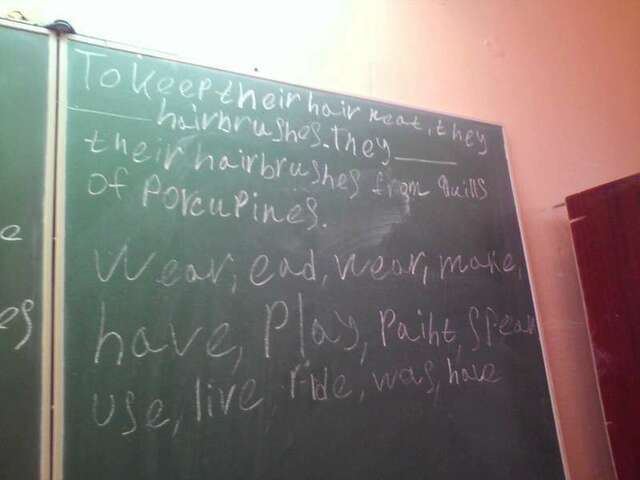 e
es
To keep their hair neat, they
____ hairbrushes. They ____
their hairbrushes from quills
of porcupines.
Wear, ead, wear, make,
have, Play, Paiht, spear
use, live, ride, was, have